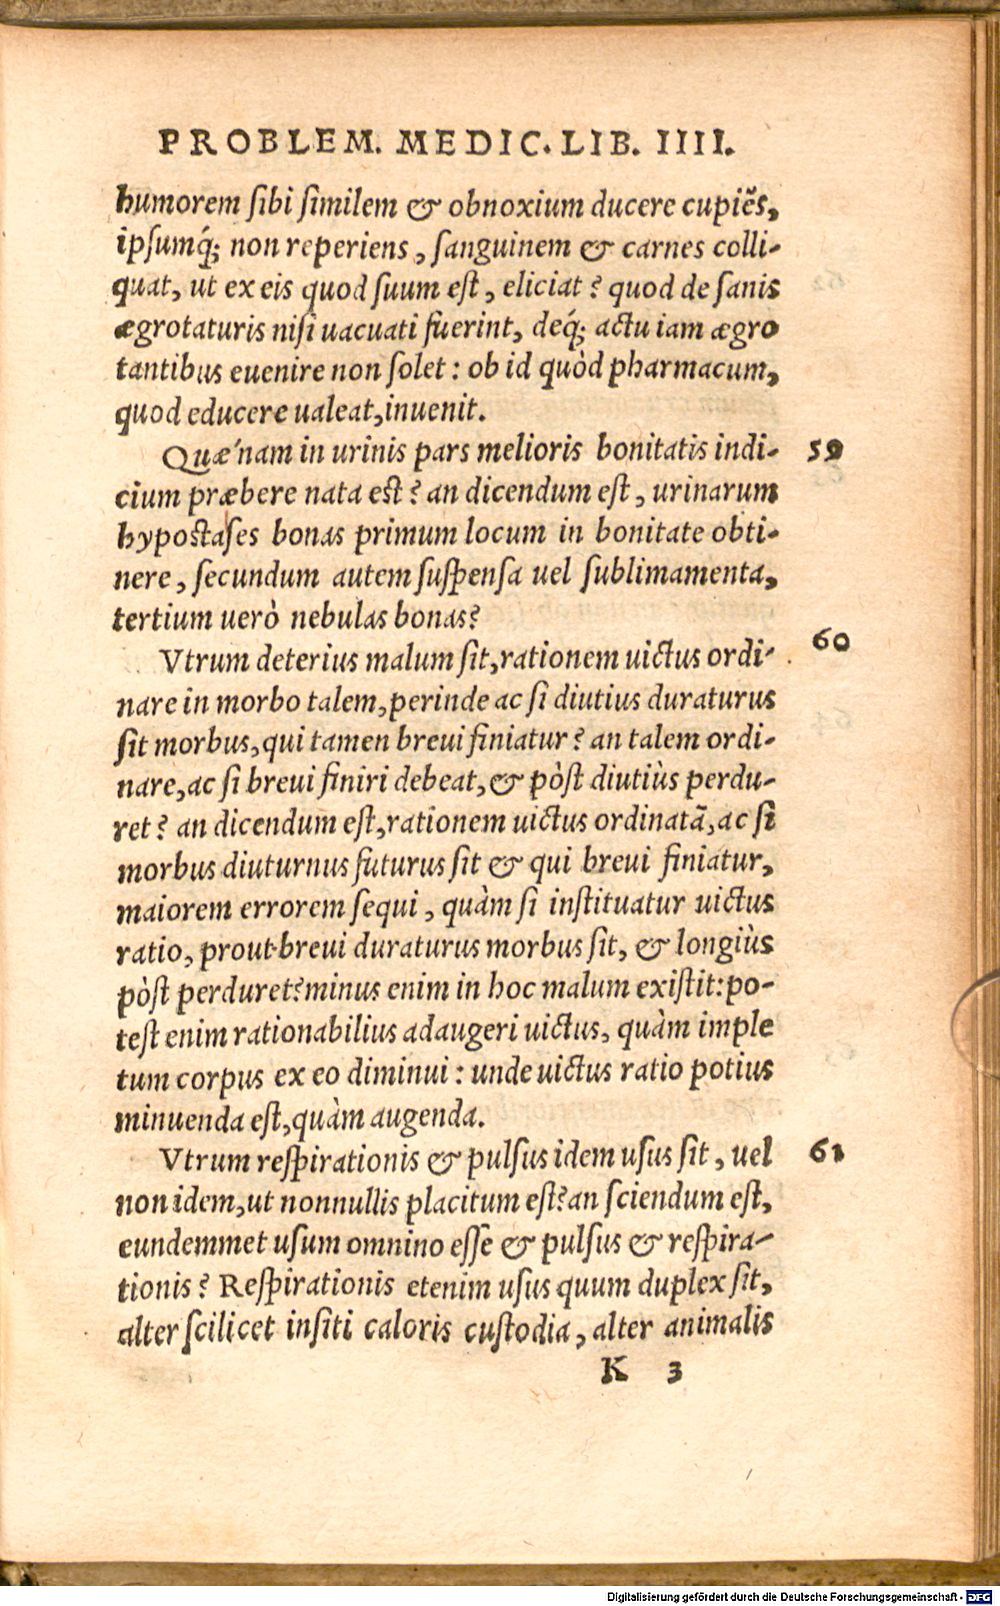 PROBLEM. MEDIC. LIB. IIII.
humorem sibi similem & obnoxium ducere cupiẽs,
ipsumq́; non reperiens, sanguinem & carnes colli-
quat, ut ex eis quod suum est, eliciat? quod de sanis
ægrotaturis nisi uacuati fuerint, deq́; actu iam ægro
tantibus euenire non solet: ob id quòd pharmacum,
quod educere ualeat, inuenit.
Quæ´nam in urinis pars melioris bonitatis indi- 59
cium præbere nata est? an dicendum est, urinarum
hypostases bonas primum locum in bonitate obti-
nere, secundum autem suspensa uel sublimamenta,
tertium uerò nebulas bonas?
Vtrum deterius malum sit, rationem uictus ordi- 60
nare in morbo talem, perinde ac si diutius duraturus
sit morbus, qui tamen breui finiatur? an talem ordi-
nare, ac si breui finiri debeat, & pòst diutiùs perdu-
ret? an dicendum est, rationem uictus ordinatã, ac si
morbus diuturnus futurus sit & qui breui finiatur,
maiorem errorem sequi, quàm si instituatur uictus
ratio, prout breui duraturus morbus sit, & longiùs
pòst perduret? minus enim in hoc malum existit: po-
test enim rationabilius adaugeri uictus, quàm imple
tum corpus ex eo diminui: unde uictus ratio potius
minuenda est, quàm augenda.
Vtrum respirationis & pulsus idem usus sit, uel 61
non idem, ut nonnullis placitum est? an sciendum est,
eundemmet usum omnino esse & pulsus & respira-
tionis? Respirationis etenim usus quum duplex sit,
alter scilicet insiti caloris custodia, alter animalis
K 3
Digitalisierung gefördert durch die Deutsche Forschungsgemeinschaft - DFG